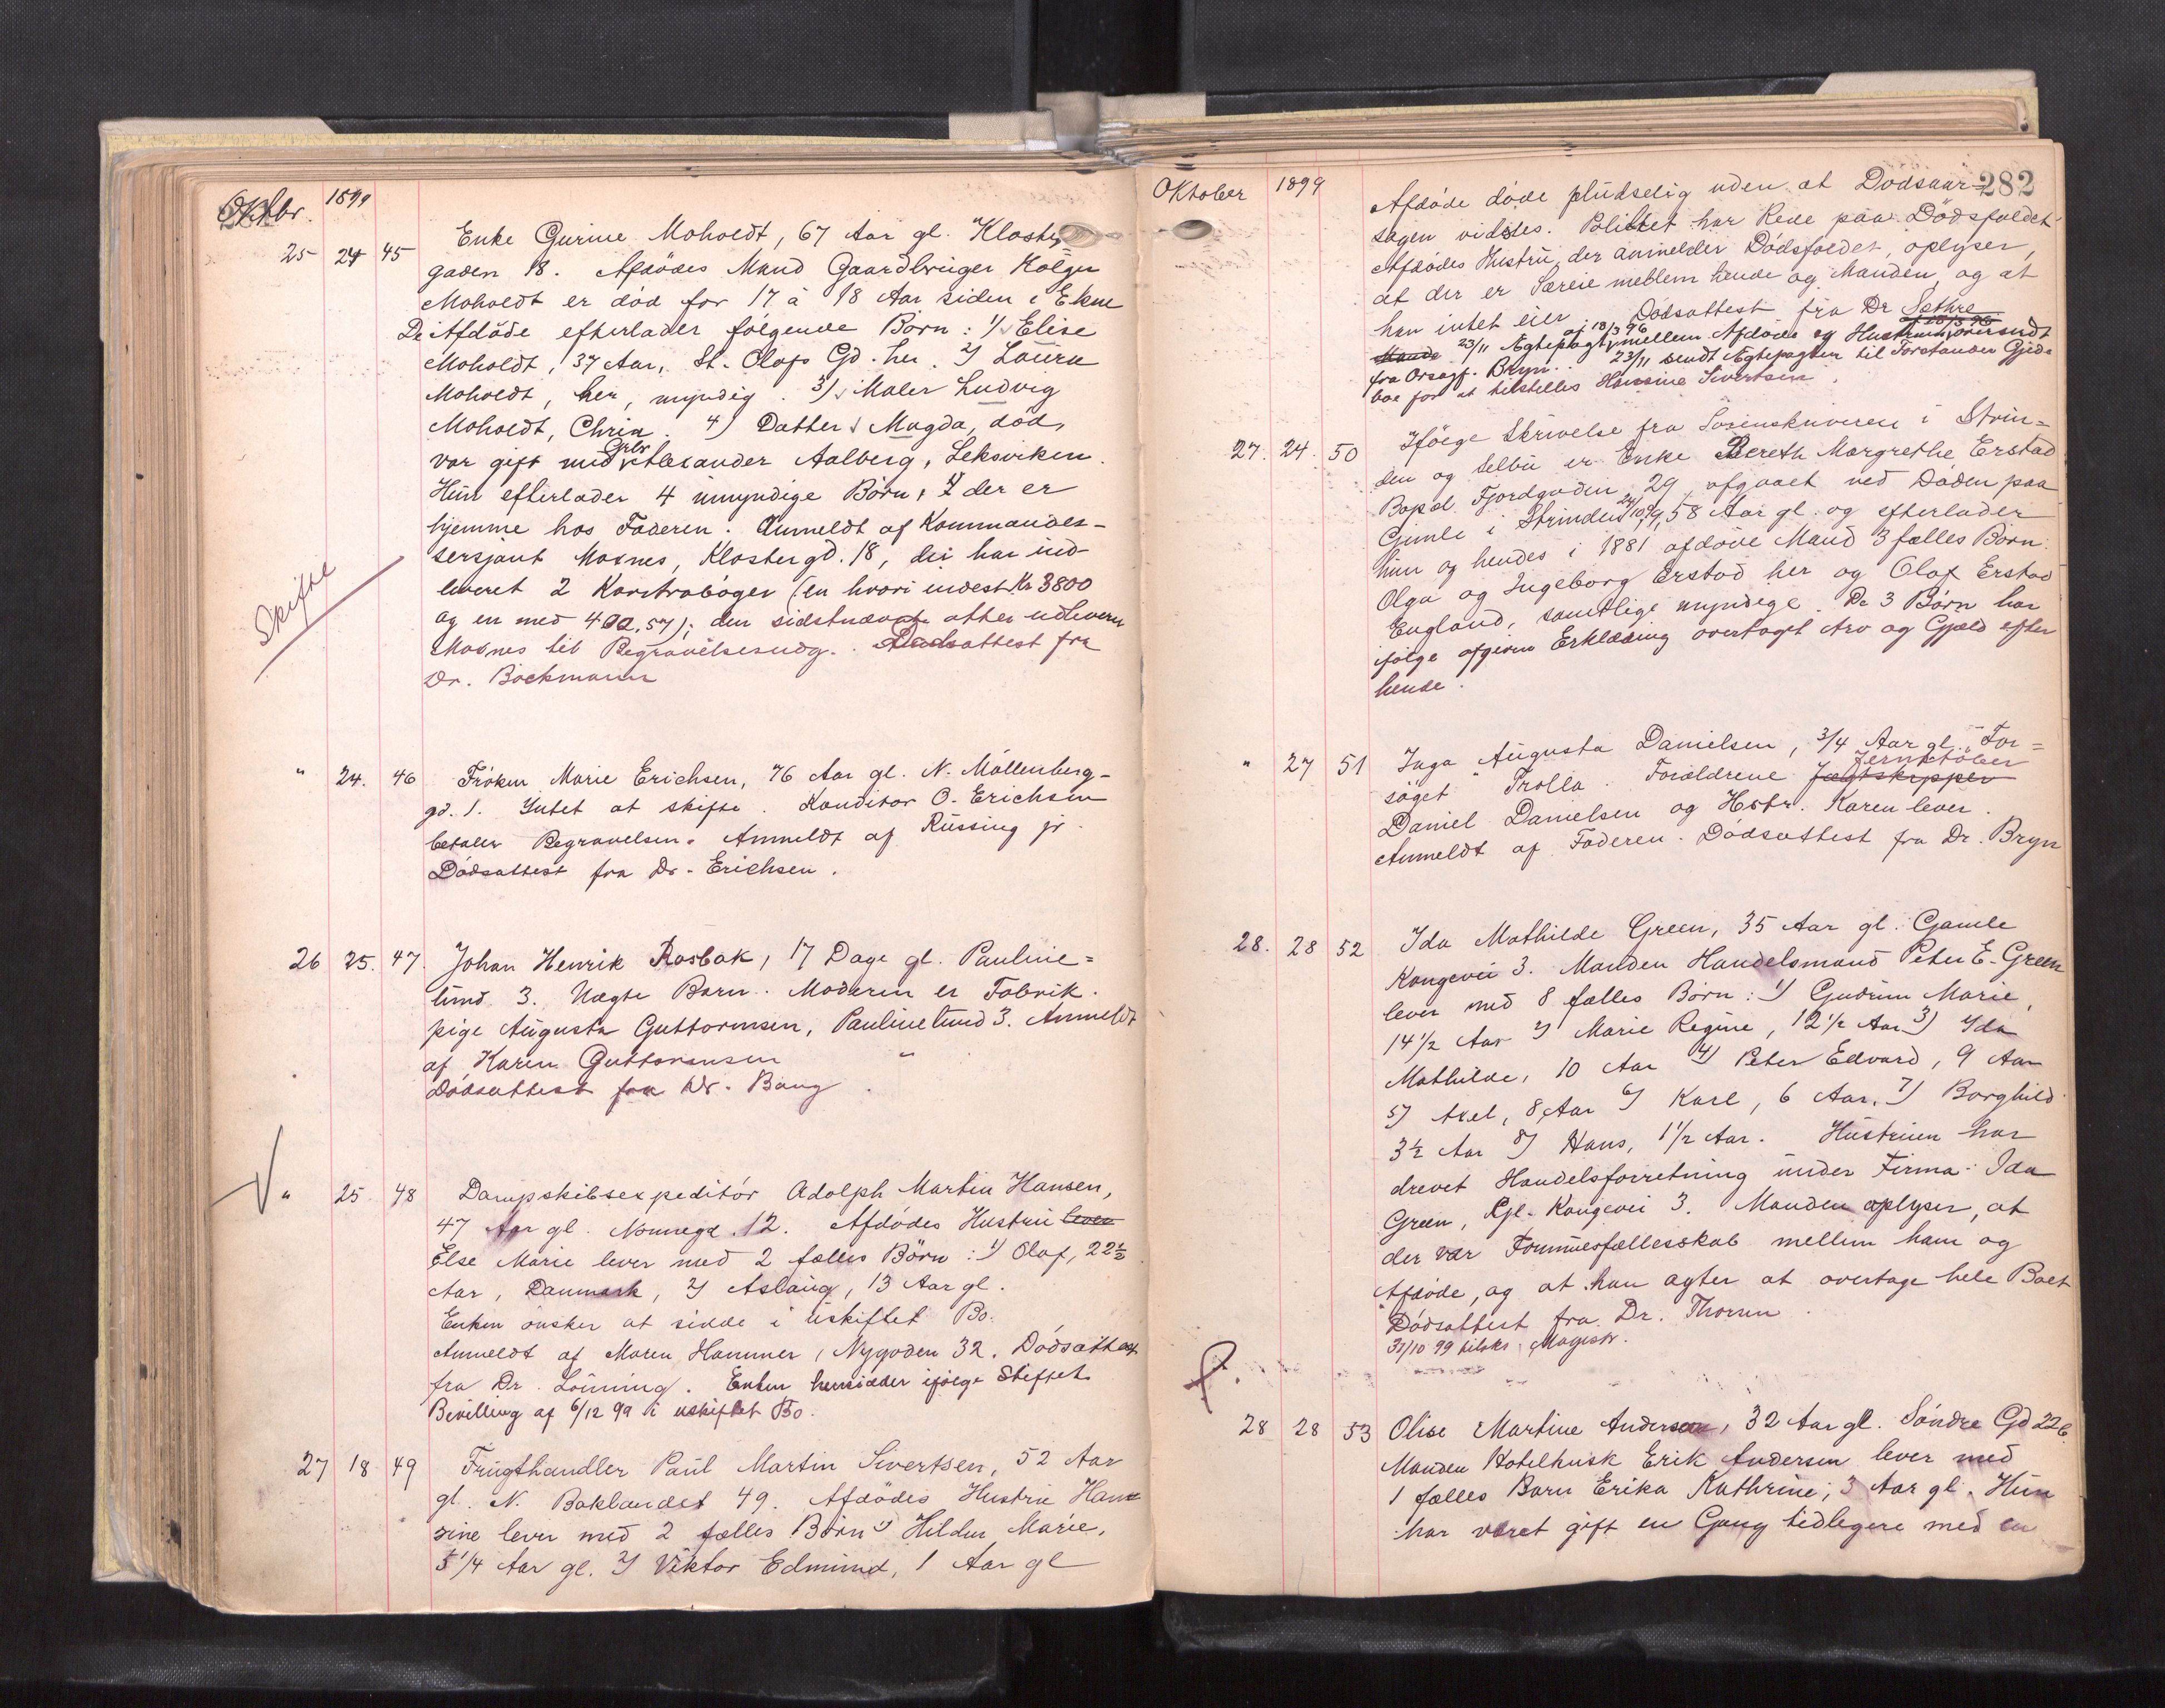 Oktbr. 1899
25 24 45 Enke Gurine Moholdt, 67 Aar gl. Kloster
gaden 18. Afdödes Mand Gaardbruger Holger
Moholdt er död for 17 à 18 Aar siden i Ekne
De Afdöde efterlader fölgende Börn: 1) Elise
Moholdt, 37 Aar, St. Olafs Gd. her. 2) Laura
Moholdt, her, myndig. 3) Maler Ludvig
Moholdt, Chria. 4) Datter Magda, död,
var gift med Alexander Aalberg, Leksviken.
Hun efterlader 4 umyndige Börn, der er
hjemme hos Faderen. Anmeldt af Kommander-
sersjant Moxnes, Klostergd. 18, der har ind-
Skifte
leveret 2 Kontrabøger (en hvori indest. Kr 3800
og en med 400,57); den sidstnævnte atter udleveret
Moxnes til Begravelsesudg. Dødsattest fra
Dr. Böckmann
" 24. 46 Fröken Marie Erichsen, 76 Aar gl. N. Möllenberg-
gd. 1. Intet at skifte. Konditor O. Erichsen
betaler Begravelsen. Anmeldt af Rüssing jr.
Dödsattest fra Dr. Erichsen.
26 25. 47. Johan Henrik Rosbak, 17 Dage gl. Pauline=
lund 3. Uægte Barn. Moderen er Fabrik-
pige Augusta Guttormsen, Paulinelund 3. Anmeldt
af Karen Guttormsen "
Dödsattest fra Dr. Bang.
" 25 48 Dampskibsexpeditör Adolph Martin Hansen,
47 Aar gl. Nonnegd. 12. Afdödes Hustru lever
Else Marie lever med 2 fælles Börn: 1) Olaf, 22½
Aar, Danmark, 2) Aslaug, 13 Aar gl.
Enken önsker at sidde i uskiftet Bo.
Anmeldt af Maren Hammer, Nygaden 32. Dödsattest
fra Dr. Lönning. Enken hensidder ifölge Stiftets
Bevilling af 6/12 99 i uskiftet Bo.
27 18 49 Frugthandler Paul Martin Sivertsen, 52 Aar
gl. N. Baklandet 49. Afdödes Hustru Han
sine lever med 2 fælles Börn 1) Hildur Marie,
5 1/4 Aar gl. 2) Viktor Edmund, 1 Aar gl
Oktober 1899 282
Afdöde döde pludselig uden at Dödsaar-
sagen vidstes. Politiet har Rede paa Dödsfaldet.
Afdödes Hustru, der anmelder Dödsfaldet, oplyser,
at der er Særeie mellem hende og Manden, og at
han intet eier. Dödsattest fra Dr Sethre
23/11 Ægtepagt af 18/3 96 mellem Afdöde og Hustru oversendt
fra Orsagf. Bryn. 23/11 sendt Ægtepagten til Forstander Gjede
boe for at tilstilles Hansine Sivertsen.
27. 24. 50 Ifölge Skrivelse fra Sorenskriveren i Strin=
den og Selbu er Enke Bereth Margrethe Erstad
Bopæl Fjordgaden 29, afgaaet ved Döden paa
Gimle i Strinden 24/10 99, 58 Aar gl. og efterlader
hun og hendes i 1881 afdöde Mand 3 fælles Börn:
Olga og Ingeborg Erstad her og Olaf Erstad
England, samtlige myndige. De 3 Börn har
ifölge afgiven Erklæring overtaget Arv og Gjæld efter
hende.
" 27 51 Inga Augusta Danielsen, 3/4 Aar gl. "For=
söget" Trolla. Forældrene Jægtskipper Jernstöber
Daniel Danielsen og Hstr. Karen lever.
Anmeldt af Faderen. Dödsattest fra Dr. Bryn
28. 28 52 Ida Mathilde Green, 35 Aar gl. Gamle
Kongevei 3. Manden Handelsmand Peter E. Green
lever med 8 fælles Börn: 1) Gudrun Marie,
14½ Aar 2) Marie Regine, 12½ Aar 3) Ida
Mathilde, 10 Aar 4) Peter Edvard, 9 Aar
5) Axel, 8 Aar 6) Karl, 6 Aar, 7) Borghild
3½ Aar 8) Hans, 1½ Aar. Hustruen har
drevet Handelsforretning under Firma: Ida
Green, Gl. Kongevei 3. Manden oplyser, at
der var Formuesfællesskab mellem ham og
Afdöde, og at han agter at overtage hele Boet
Dödsattest fra Dr. Thoren.
31/10 99 tilskr. Magistr.
28 28 53 Olise Martine Andersen, 32 Aar gl. Söndre Gd 22b.
Manden Hotelhusk Erik Andersen lever med
1 fælles Barn Erika Kathrine, 3 Aar gl. Hun
har været gift en Gang tidligere med en